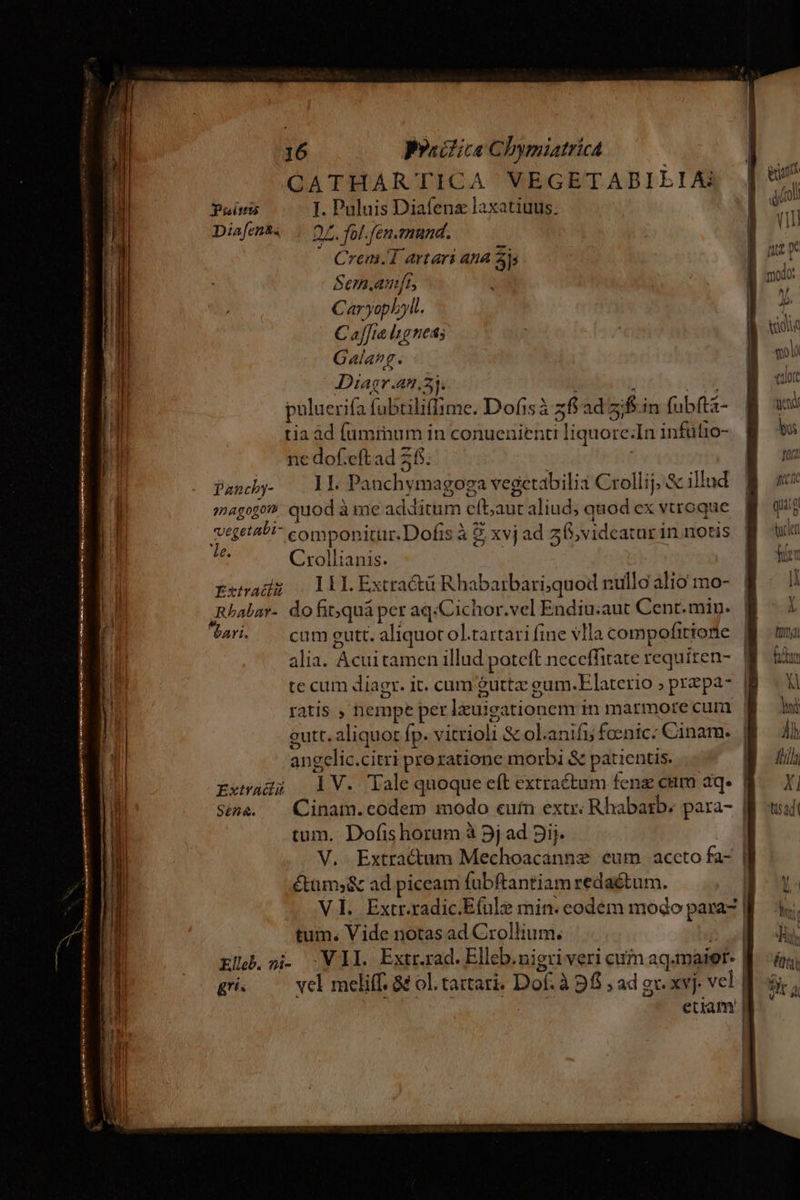 16 Practica Chymiatrica
CATHARTICA VEGETABILIA:
Puluis I. Puluis Diafenæ laxatiuus.
Diafenæ. ℞. fol. sen. mund.
Crem. Tartari ana ʒjs
Sem. anisi,
Caryophyll.
Cassiæ ligneæ;
Galang.
Diagr. an. ʒj.
puluerisa subtilissime. Dosis à ʒß ad ʒjß in substā-
tia ad summum in conuenienti liquore. In infusio-
ne dos. est ad ℥ß.
Panchy- II. Panchymagoga vegetabilia Crollij, & illud
magogon quod à me additum est, aut aliud, quod ex vtroque
vegetabi- componitur. Dosis à g. xvj ad ʒß, videatur in notis
le. Crollianis.
Extractū III. Extractū Rhabarbari, quod nullo alio mo-
Rhabar- do fit, quā per aq. Cichor. vel Endiu. aut Cent. min.
bari. cum gutt. aliquot ol. tartari sine vlla compositione
alia. Acui tamen illud potest necessitate requiren-
te cum diagr. it. cum guttæ gum. Elaterio, præpa-
ratis, nempe per læuigationem in marmore cum
gutt. aliquot sp. vitrioli & ol. anisi, fœnic. Cinam.
angelic. citri pro ratione morbi & patientis.
Extractū IV. Tale quoque est extractum senæ cum aq.
Senæ. Cinam. eodem modo cum extr. Rhabarb. para-
tum. Dosis horum à ℈j ad ℈ij.
V. Extractum Mechoacannæ cum aceto fa-
ctum, & ad piceam substantiam redactum.
VI. Extr. radic. Esulæ min. eodem modo para-
tum. Vide notas ad Crollium.
Elleb. ni- VII. Extr. rad. Elleb. nigri veri cum aq. maior.
gri. vel meliss. & ol. tartari. Dos. à ℈ß, ad gr. xvj. vel
etiam